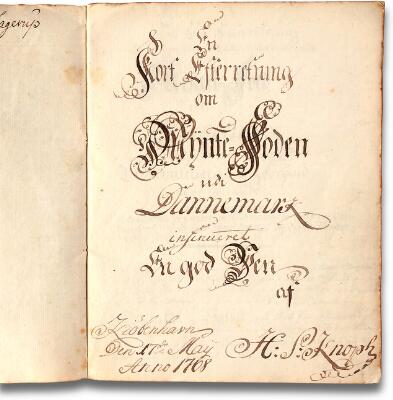 En
Kort Efterretning
om
Mynte-Foden
udi
Dannemark
insinueret
En god Ven
af
Kiöbenhavn
Den 17de Maÿ
Anno 1768
H: P: Knoph